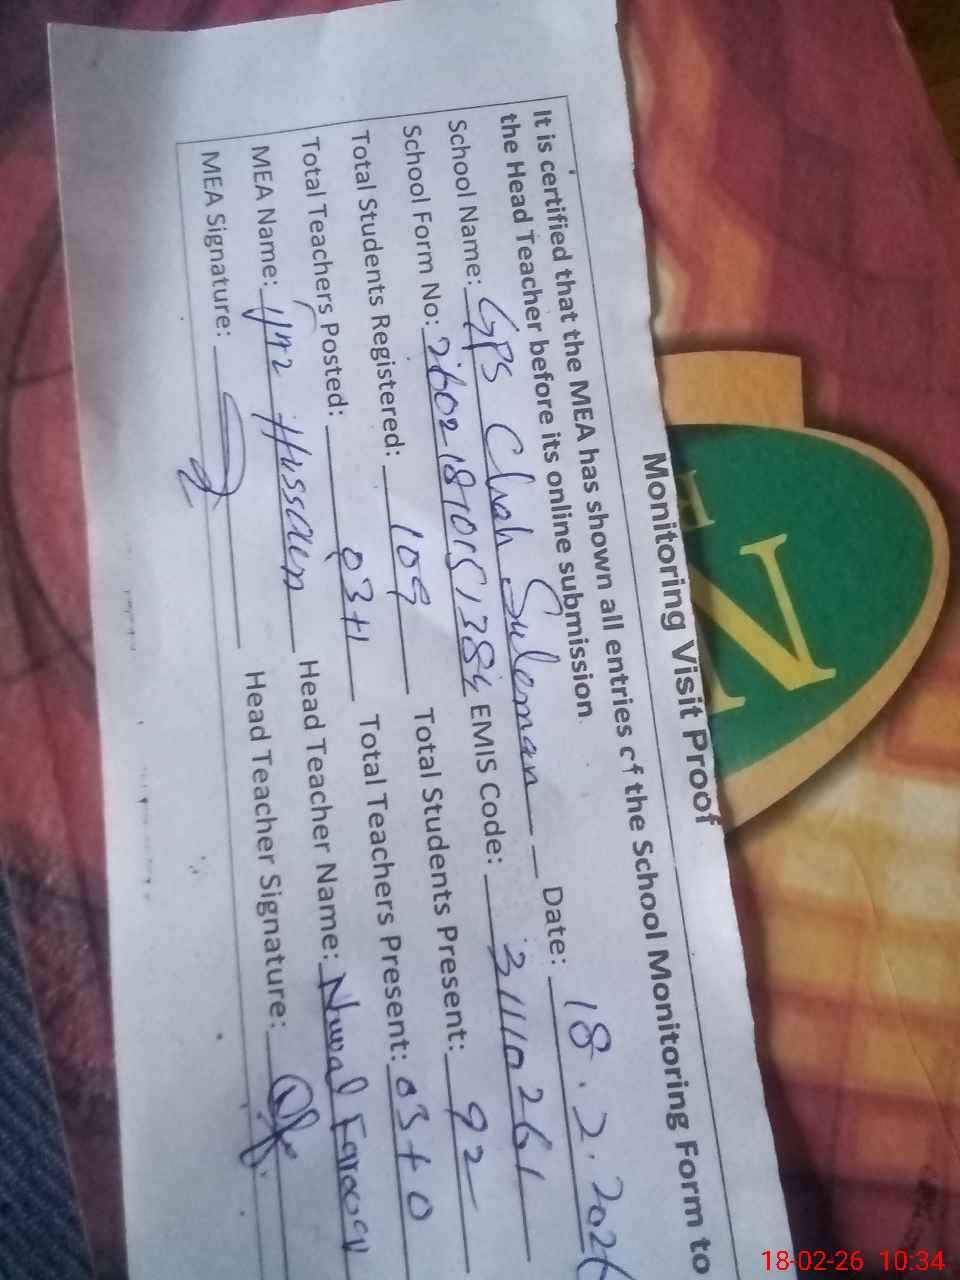 Monitoring Visit Proof
It is certified that the MEA has shown all entries of the School Monitoring Form to
the Head Teacher before its online submission.
School Name: GPS Chah Suleman Date: 18.2.2026
School Form No: 26021810151384 EMIS Code: 31110261
Total Students Registered: 109 Total Students Present: 92
Total Teachers Posted: 03+1 Total Teachers Present: 03+0
MEA Name: Hussain Head Teacher Name: Farooq
MEA Signature: Head Teacher Signature:
N
18-02-26 10:34